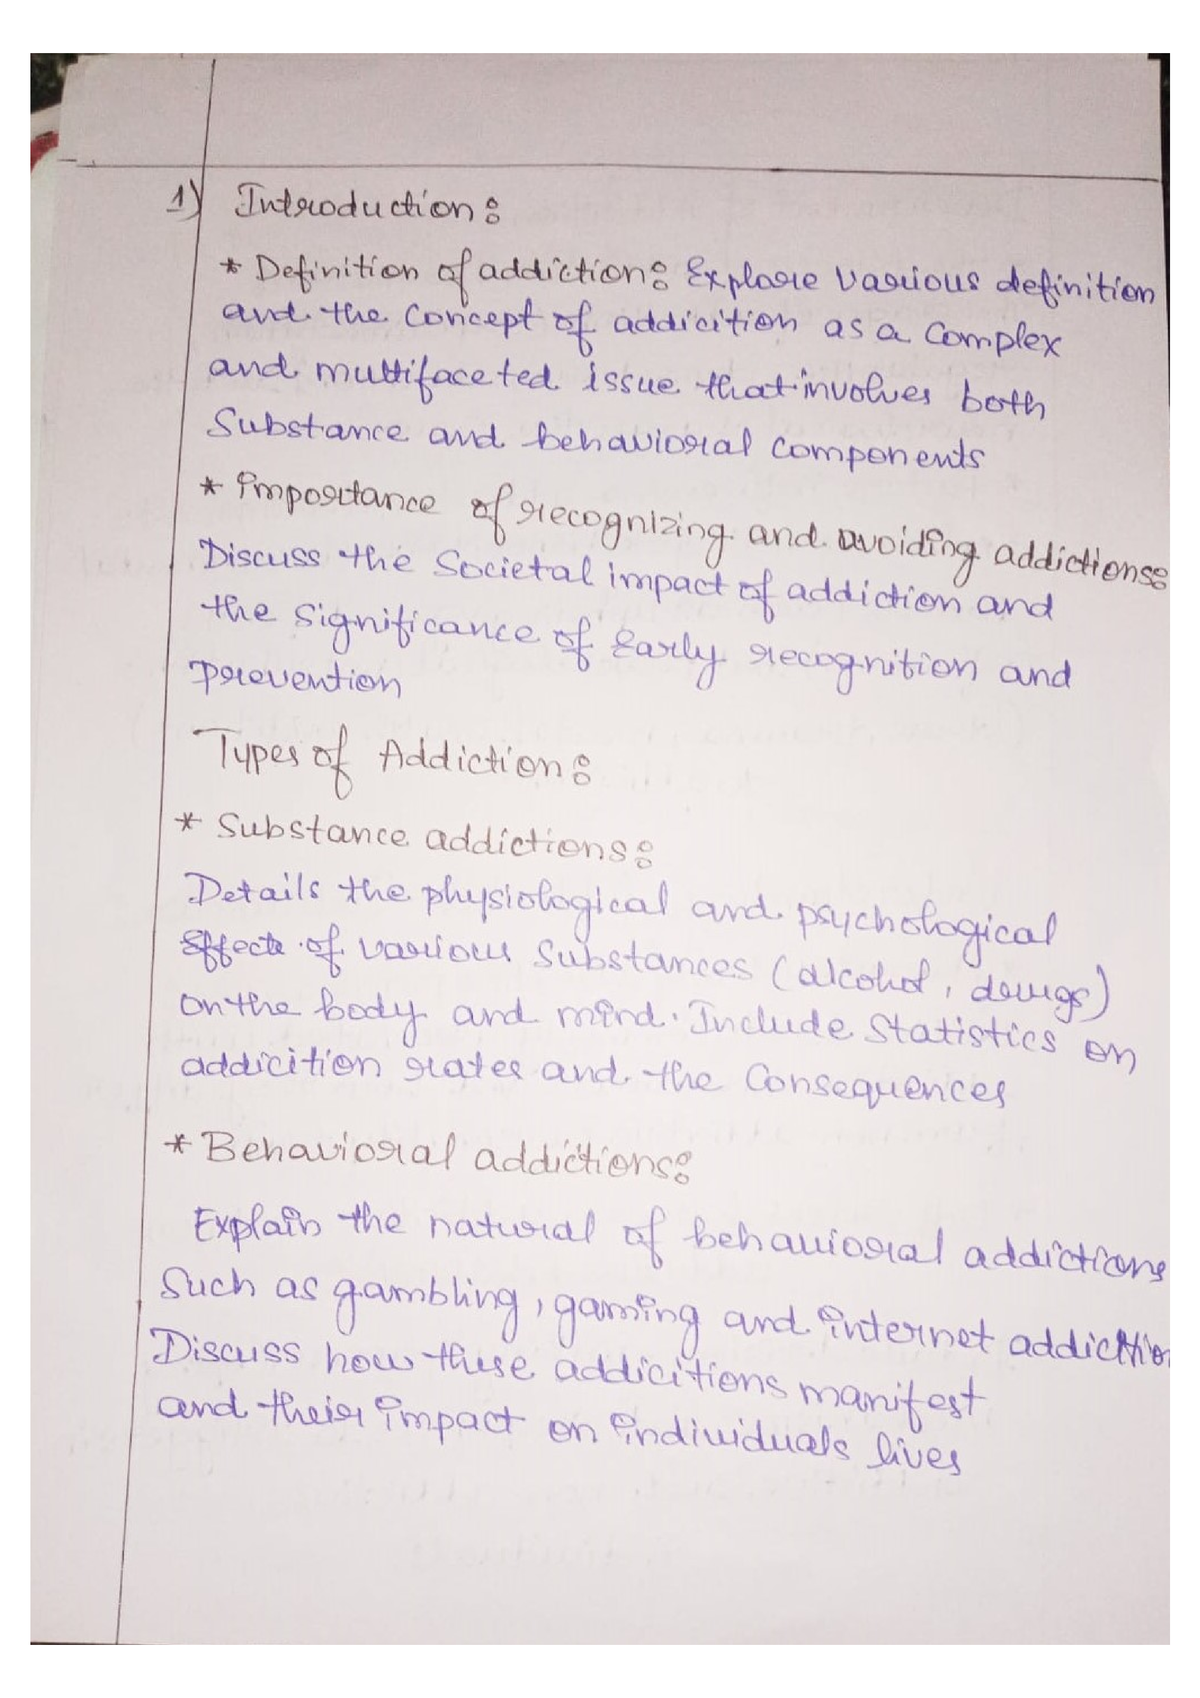 1) Introduction:
* Definition of addiction: Explore various definition
and the concept of addicition as a complex
and multifaceted issue that involves both
Substance and behavioral components
* Importance of recognizing and avoiding addictions:
Discuss the Societal impact of addiction and
the significance of Early recognition and
prevention
Types of Addiction:
* Substance addictions:
Details the physiological and psychological
Effects of various Substances (alcohol, drugs)
on the body and mind. Include Statistics on
addicition rates and the Consequences
* Behavioral addictions:
Explain the natural of behavioral addictions
Such as gambling, gaming and internet addiction
Discuss how these addicitions manifest
and their impact on individuals lives